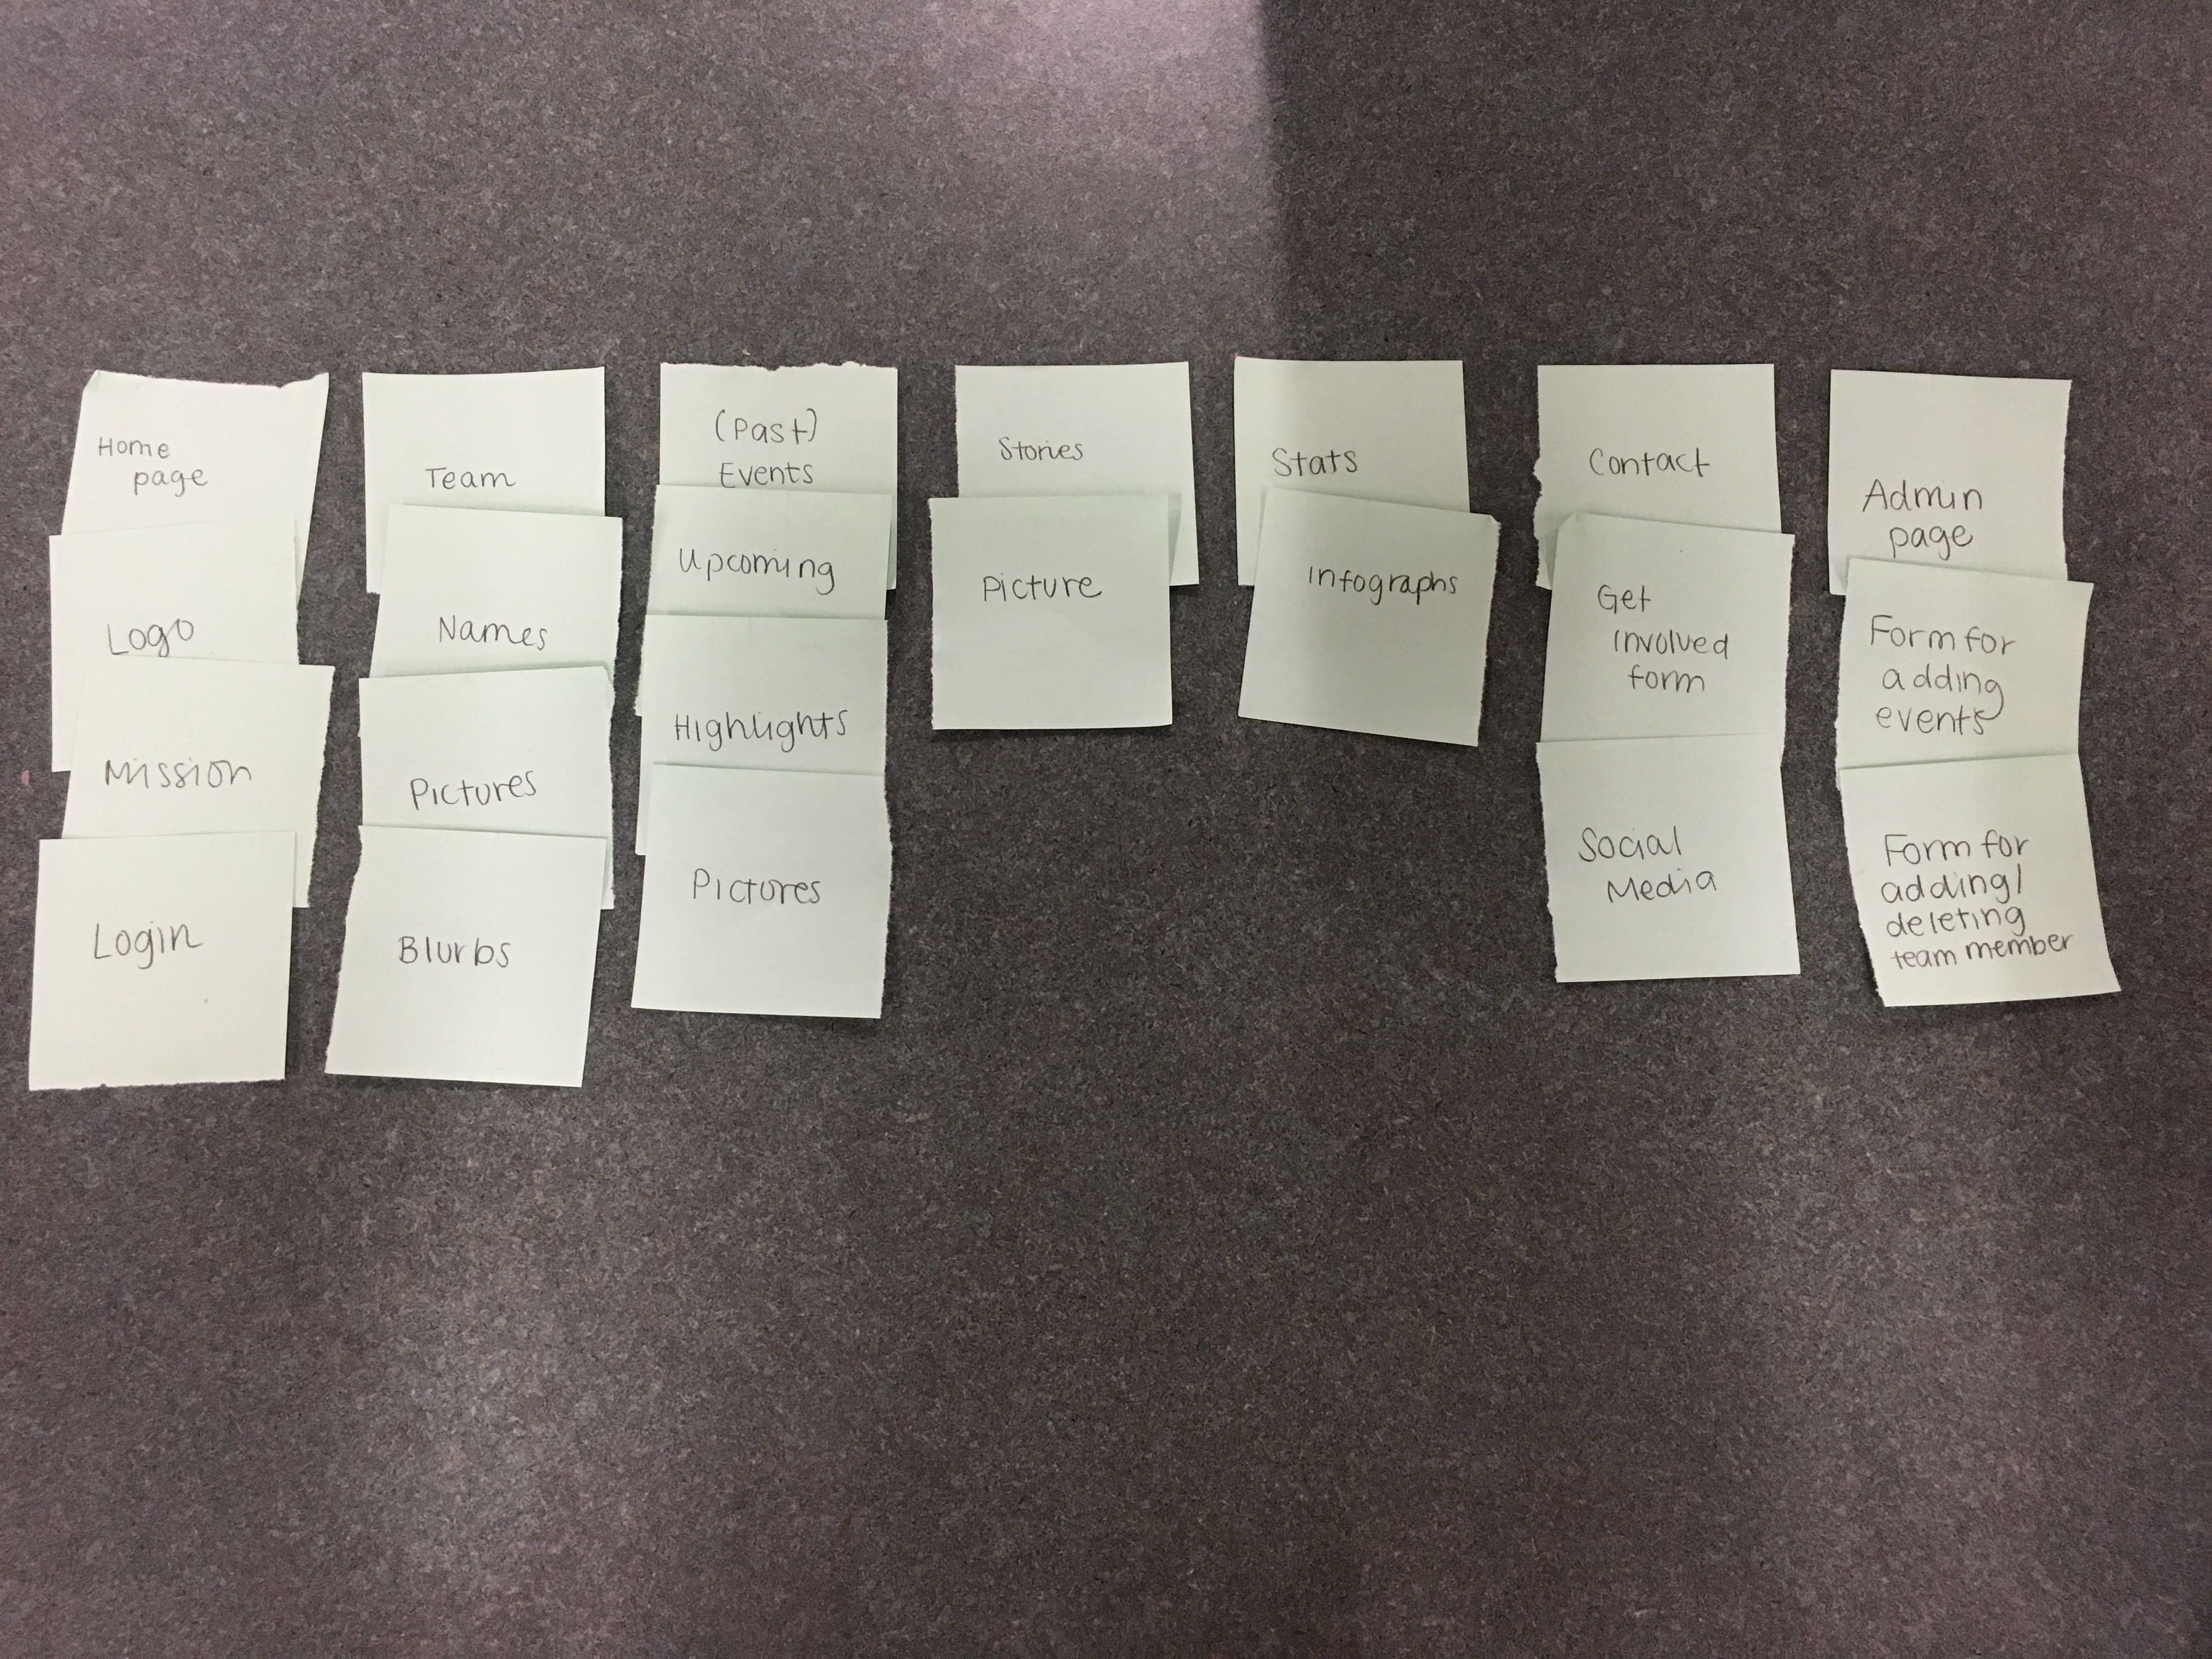 Home
page
Logo
Mission
Login
Team
Names
Pictures
Blurbs
(Past)
Events
Upcoming
Highlights
Pictures
Stories
Picture
Stats
Infographs
Contact
Get
involved
form
Social
Media
Admin
page
Form for
adding
events
Form for
adding/
deleting
team member